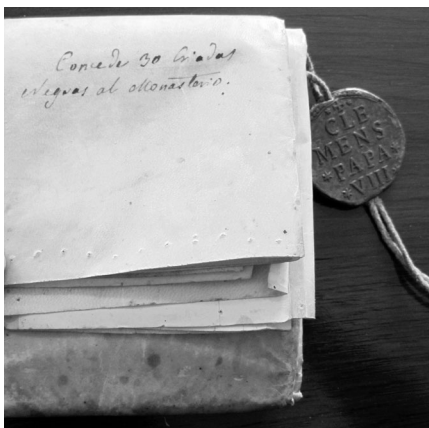 Concede 30 Criadas
Negras al Monasterio.
✠
CLE
MENS
★PAPA★
VIII